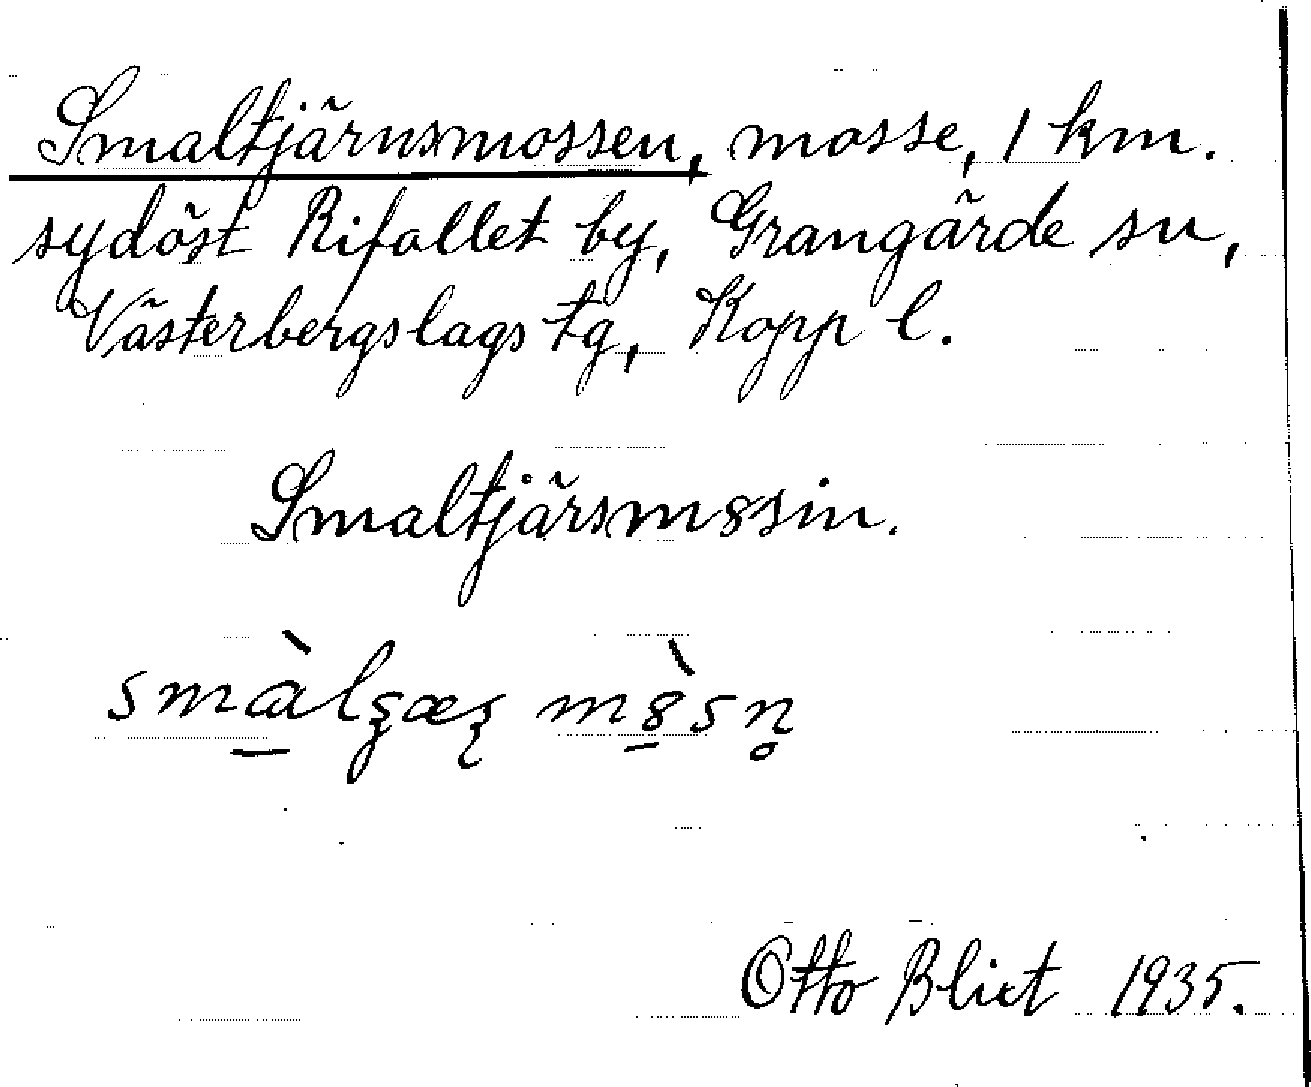 Smaltjärnsmossen, mosse, 1 km.
sydöst Rifallet by, Grangärde sn,
Västerbergslags tg, Kopp l.
Smaltjärsm8sin.
Otto Blixt 1935.